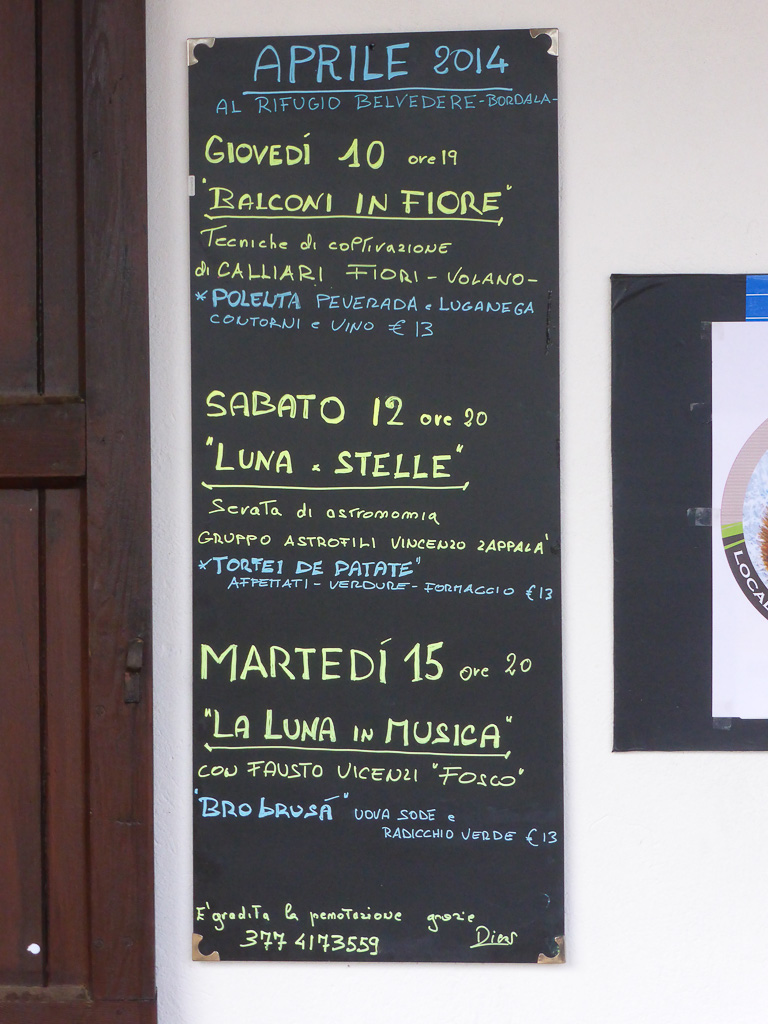 APRILE 2014
AL RIFUGIO BELVEDERE-BORDALA-
GIOVEDÍ 10 ore 19
"BALCONI IN FIORE"
Tecniche di coltivazione
di CALLIARI FIORI - VOLANO -
*POLENTA PEVERADA e LUGANEGA
CONTORNI e VINO € 13
SABATO 12 ore 20
"LUNA e STELLE"
Serata di astronomia
GRUPPO ASTROFILI VINCENZO ZAPPALA'
*TORTEI DE PATATE"
AFFETTATI - VERDURE - FORMAGGIO € 13
MARTEDÍ 15 ore 20
"LA LUNA IN MUSICA"
CON FAUSTO VICENZI "FOSCO"
"BRO BRUSÁ" UOVA SODE e
RADICCHIO VERDE € 13
E' gradita la prenotazione grazie
377 4173559
LOCAL